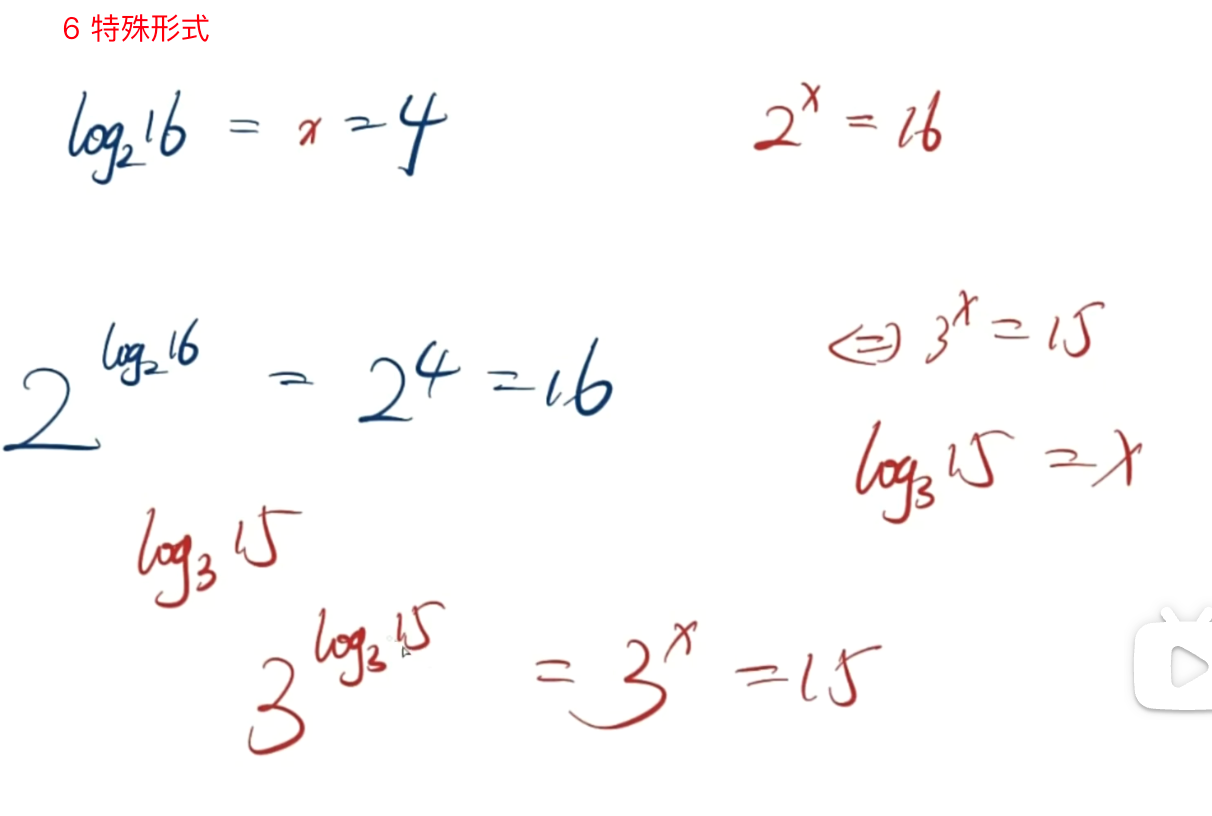 6 特殊形式
log₂16 = x = 4
2ˣ = 16
2^(log₂16) = 2⁴ = 16
⇔ 3ˣ = 15
log₃15 = x
log₃15
3^(log₃15) = 3ˣ = 15